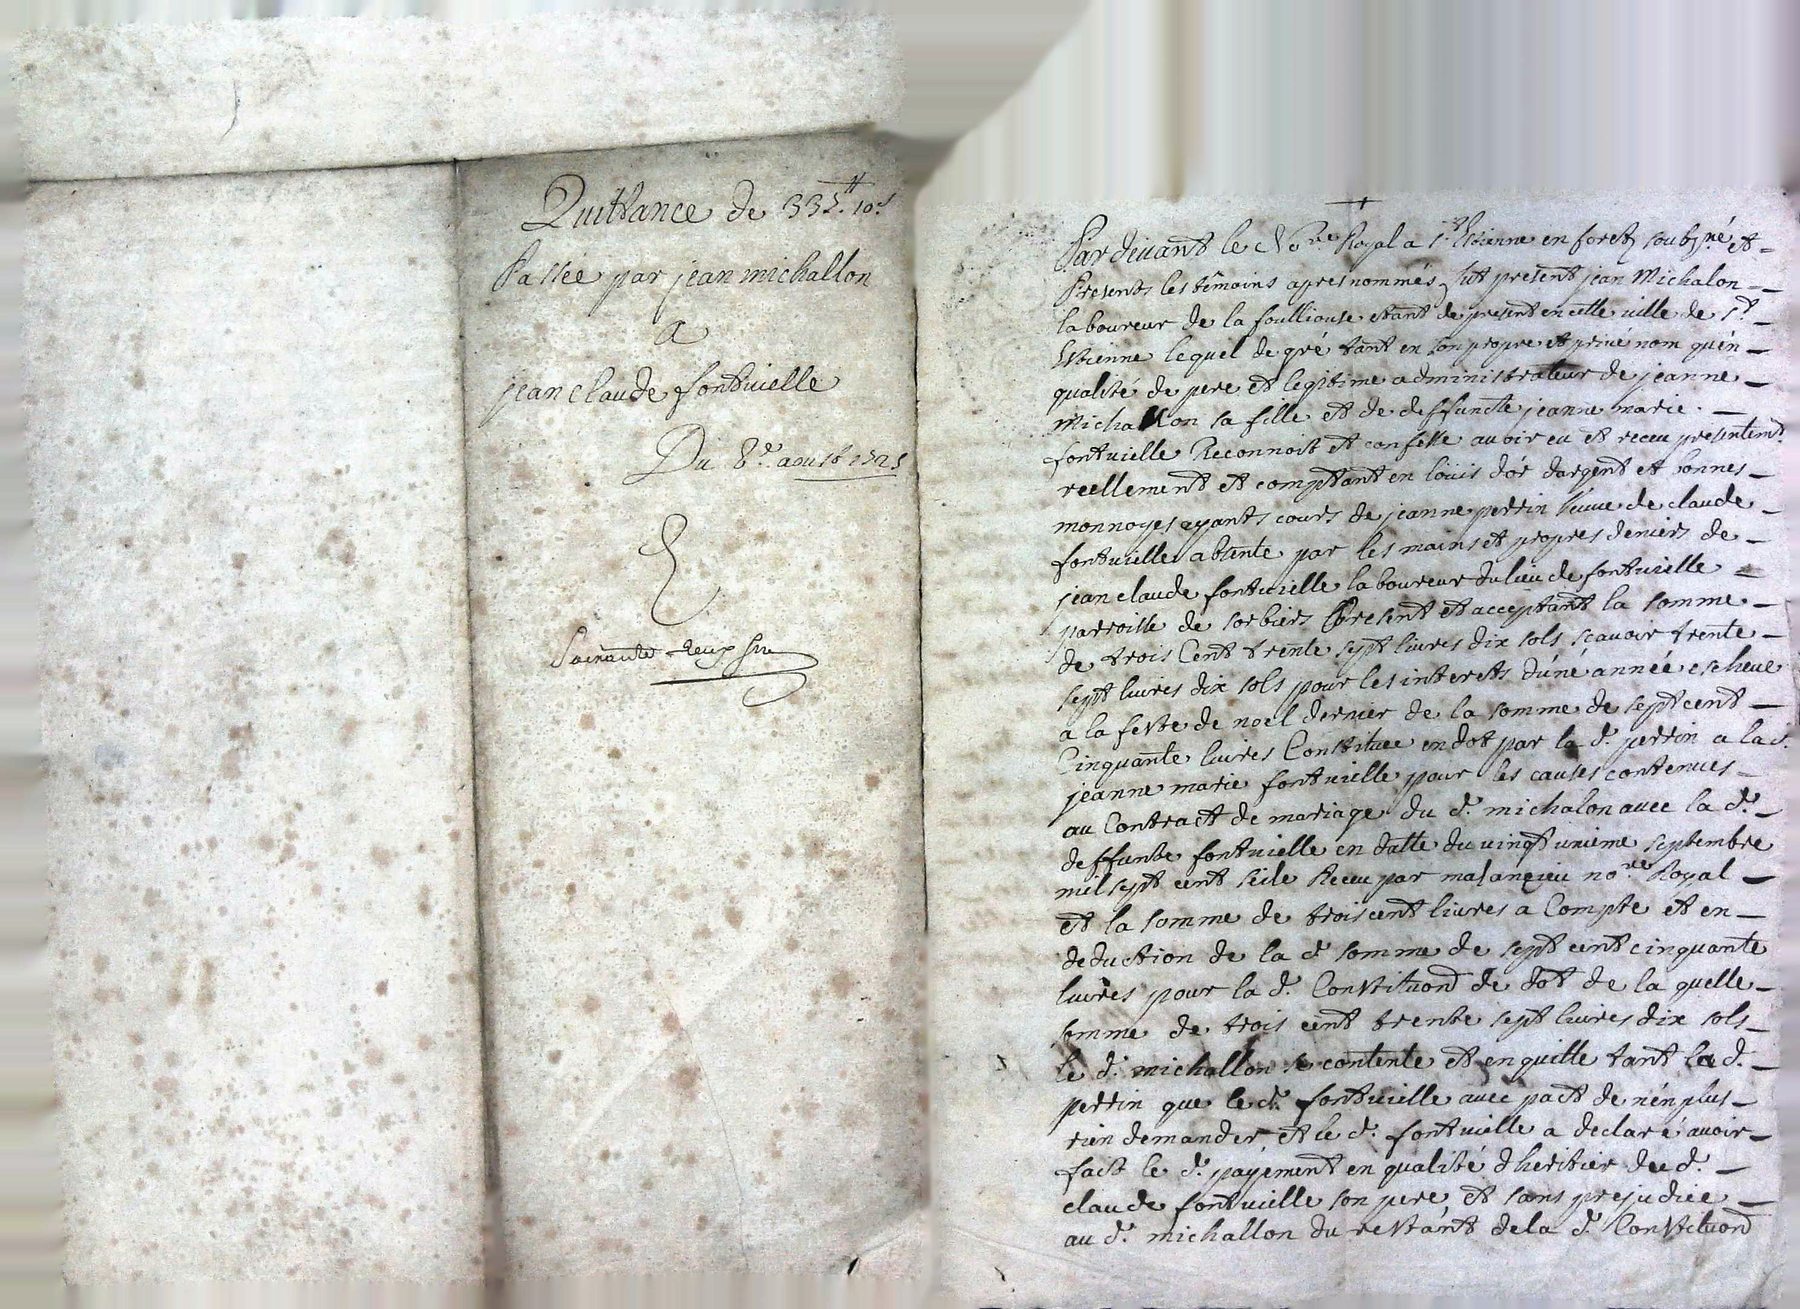 Quittance de 337.lt 10.s
Passée par jean michallon
a
jean claude fontvieille
Du 8.e aoust 1721
Soixante deux
Pardevant le No.re Royal a S.t Estienne en foretz soubz.né et
Presents les têmoins apres nommés, fut present jean Michalon
laboureur de la foulliouse etant de present en cette ville de S.t
Estienne lequel de gré tant en son propre et privé nom qu'en
qualité de pere et legitime administrateur de jeanne
Michallon sa fille et de deffuncte jeanne marie
fontvielle Reconnoit et confesse avoir eu et receu presentem.t
reellement et comptant en loüis d'or d'argent et bonnes
monnoyes ayants cours de jeanne perrin veuve de claude
fontvieille absente par les mains et propres deniers de
jean claude fontvieille laboureur du lieu de fontvieille
parroisse de sorbiers present et acceptant la somme
de trois Cent trente sept livres dix sols scavoir trente
sept livres dix sols pour les interets d'une année escheue
a la feste de noel dernier de la somme de sept cent
Cinquante livres Constituee en dot par la d. perrin a la d.
jeanne marie fontvieille pour les causes contenues
au Contract de mariage du d. michalon avec la d.
deffunte fontvieille en datte du vingt unieme septembre
mil sept cent seize Receu par no.re Royal
et la somme de trois cent livres a Compte et en
deduction de la d. somme de sept cent cinquante
livres pour la d. Constituon de dot de la quelle
somme de trois cent trente sept livres dix sols
le d. michallon se contente et en quitte tant la d.
perrin que le d. fontvieille avec pact de n'en plus
rien demander et le d. fontvieille a declaré avoir
fait le d. payement en qualité d'heritier du d.
claude fontvieille son pere et sans prejudice
au d. michallon du restant de la d. Constituon